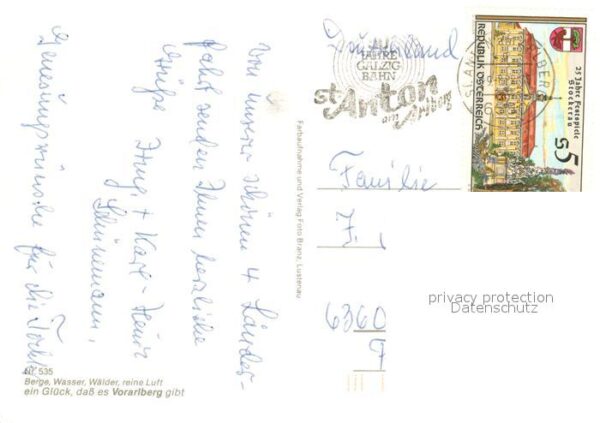 Von unserer schönen 4 Länder-
fahrt senden Ihnen herzliche
Grüße Ihre
+ Karl-Heinz
Schünemann,
Genesungswünsche für die Tochter
Nr. 535
Berge, Wasser, Wälder, reine Luft
ein Glück, daß es Vorarlberg gibt
Farbaufnahme und Verlag Foto Branz, Lustenau
JAHRE
GALZIG
BAHN
St. Anton
am Arlberg
Deutschland
REPUBLIK ÖSTERREICH
25 Jahre Festspiele
Stockerau
S5
Familie
F.
6360
F
privacy protection
Datenschutz